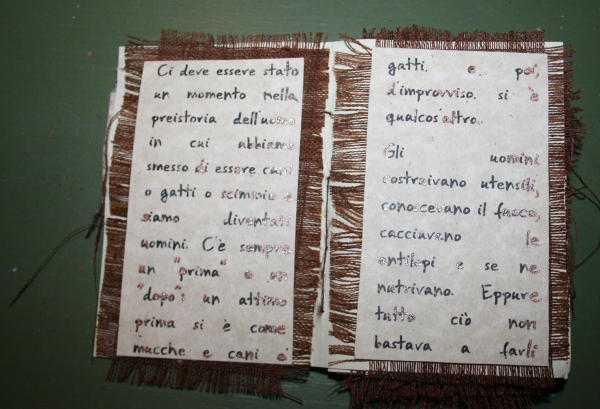 Ci deve essere stato
un momento nella
preistoria dell'uomo
in cui abbiamo
smesso di essere cani
o gatti o scimmie e
siamo diventati
uomini. C'è sempre
un "prima" e un
"dopo": un attimo
prima si è come
mucche e cani e
gatti. e poi,
d'improvviso. si è
qualcos'altro.
Gli uomini
costruivano utensili,
conoscevano il fuoco,
cacciavano le
antilopi e se ne
nutrivano. Eppure
tutto ciò non
bastava a farli